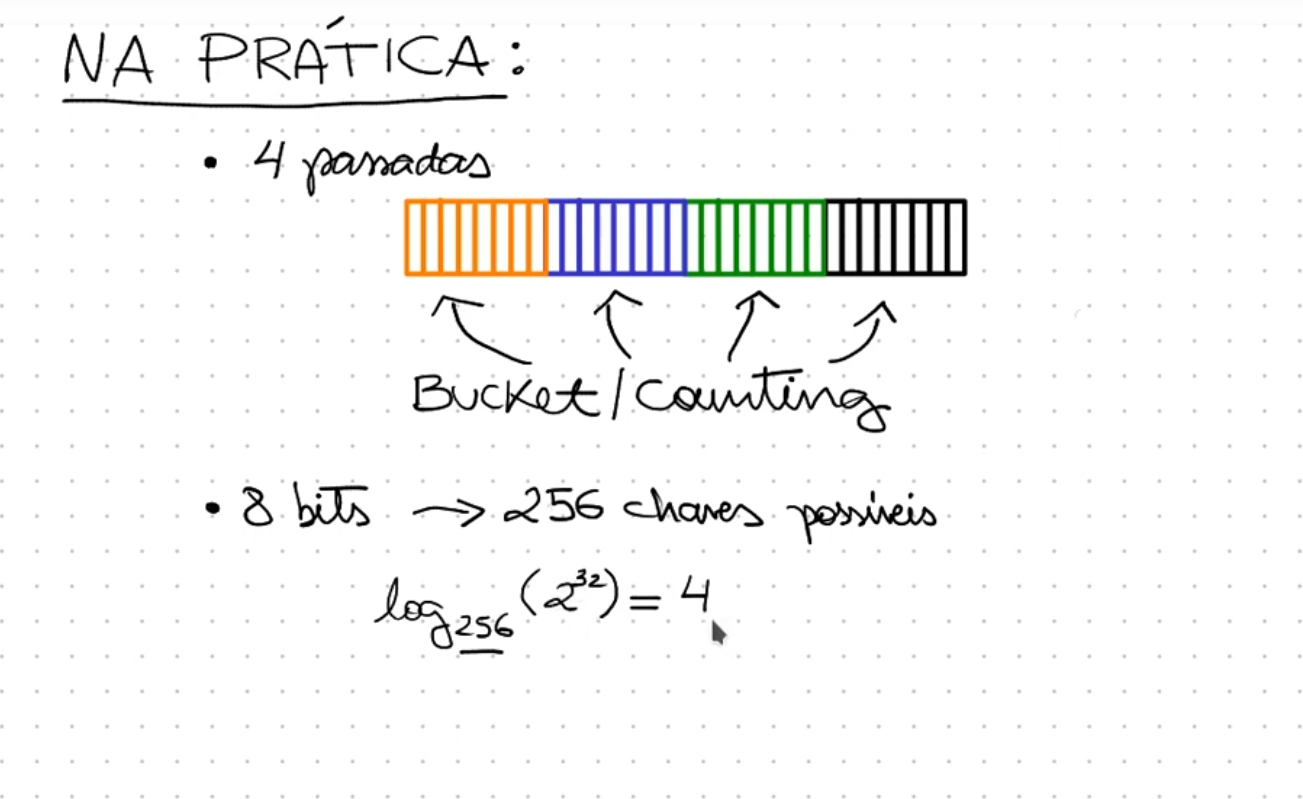 NA PRÁTICA:
• 4 passadas
Bucket/Counting
• 8 bits → 256 chaves possíveis
log₂₅₆(2³²) = 4